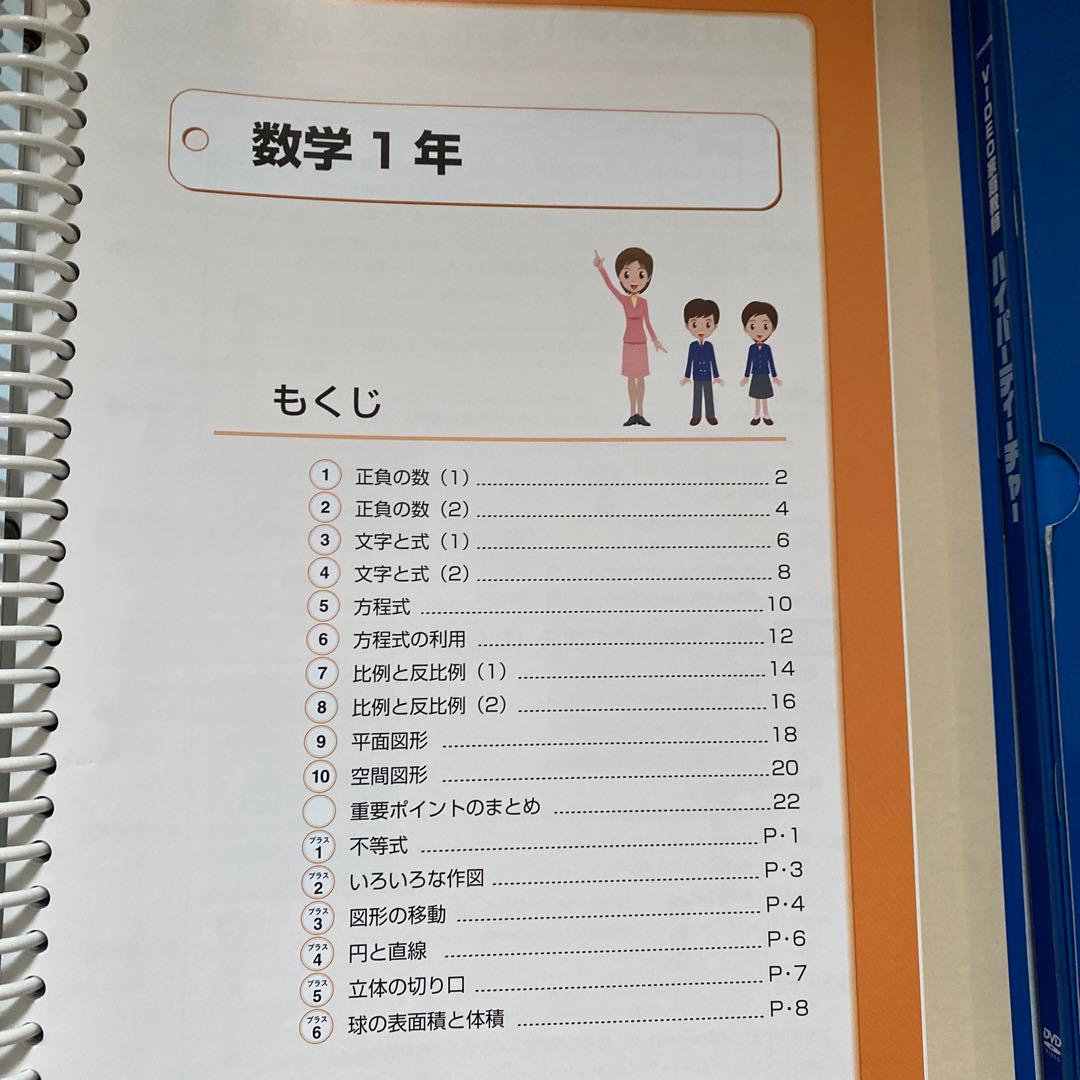 数学1年
もくじ
1 正負の数(1) 2
2 正負の数(2) 4
3 文字と式(1) 6
4 文字と式(2) 8
5 方程式 10
6 方程式の利用 12
7 比例と反比例(1) 14
8 比例と反比例(2) 16
9 平面図形 18
10 空間図形 20
重要ポイントのまとめ 22
プラス1 不等式 P・1
プラス2 いろいろな作図 P・3
プラス3 図形の移動 P・4
プラス4 円と直線 P・6
プラス5 立体の切り口 P・7
プラス6 球の表面積と体積 P・8
VIDEO家庭教師 ハイパーティーチャー
DVD
VIDEO